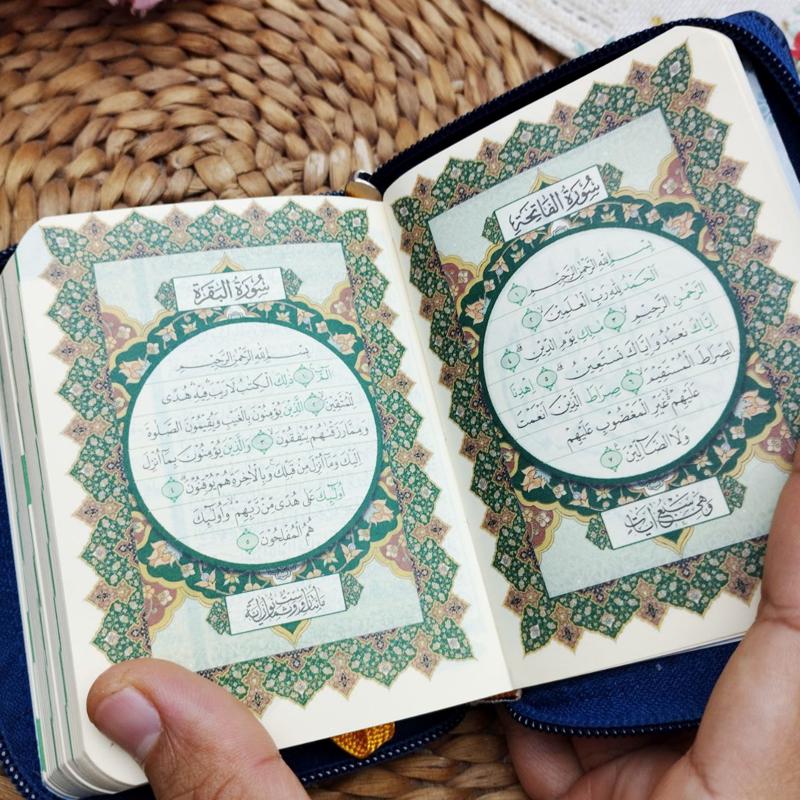 سُورَةُ الفَاتِحَةِ
بِسْمِ اللَّهِ الرَّحْمَٰنِ الرَّحِيمِ ١
الْحَمْدُ لِلَّهِ رَبِّ الْعَالَمِينَ ٢
الرَّحْمَٰنِ الرَّحِيمِ ٣ مَالِكِ يَوْمِ الدِّينِ ٤
إِيَّاكَ نَعْبُدُ وَإِيَّاكَ نَسْتَعِينُ ٥ اهْدِنَا
الصِّرَاطَ الْمُسْتَقِيمَ ٦ صِرَاطَ الَّذِينَ أَنْعَمْتَ
عَلَيْهِمْ غَيْرِ الْمَغْضُوبِ عَلَيْهِمْ
وَلَا الضَّالِّينَ ٧
وَهِيَ سَبْعُ آيَاتٍ
سُورَةُ البَقَرَةِ
بِسْمِ اللَّهِ الرَّحْمَٰنِ الرَّحِيمِ
الٓمٓ ١ ذَٰلِكَ الْكِتَابُ لَا رَيْبَ فِيهِ هُدًى
لِلْمُتَّقِينَ ٢ الَّذِينَ يُؤْمِنُونَ بِالْغَيْبِ وَيُقِيمُونَ الصَّلَوٰةَ
وَمِمَّا رَزَقْنَاهُمْ يُنْفِقُونَ ٣ وَالَّذِينَ يُؤْمِنُونَ بِمَا أُنْزِلَ
إِلَيْكَ وَمَا أُنْزِلَ مِنْ قَبْلِكَ وَبِالْآخِرَةِ هُمْ يُوقِنُونَ ٤
أُولَٰئِكَ عَلَىٰ هُدًى مِنْ رَبِّهِمْ وَأُولَٰئِكَ
هُمُ الْمُفْلِحُونَ ٥